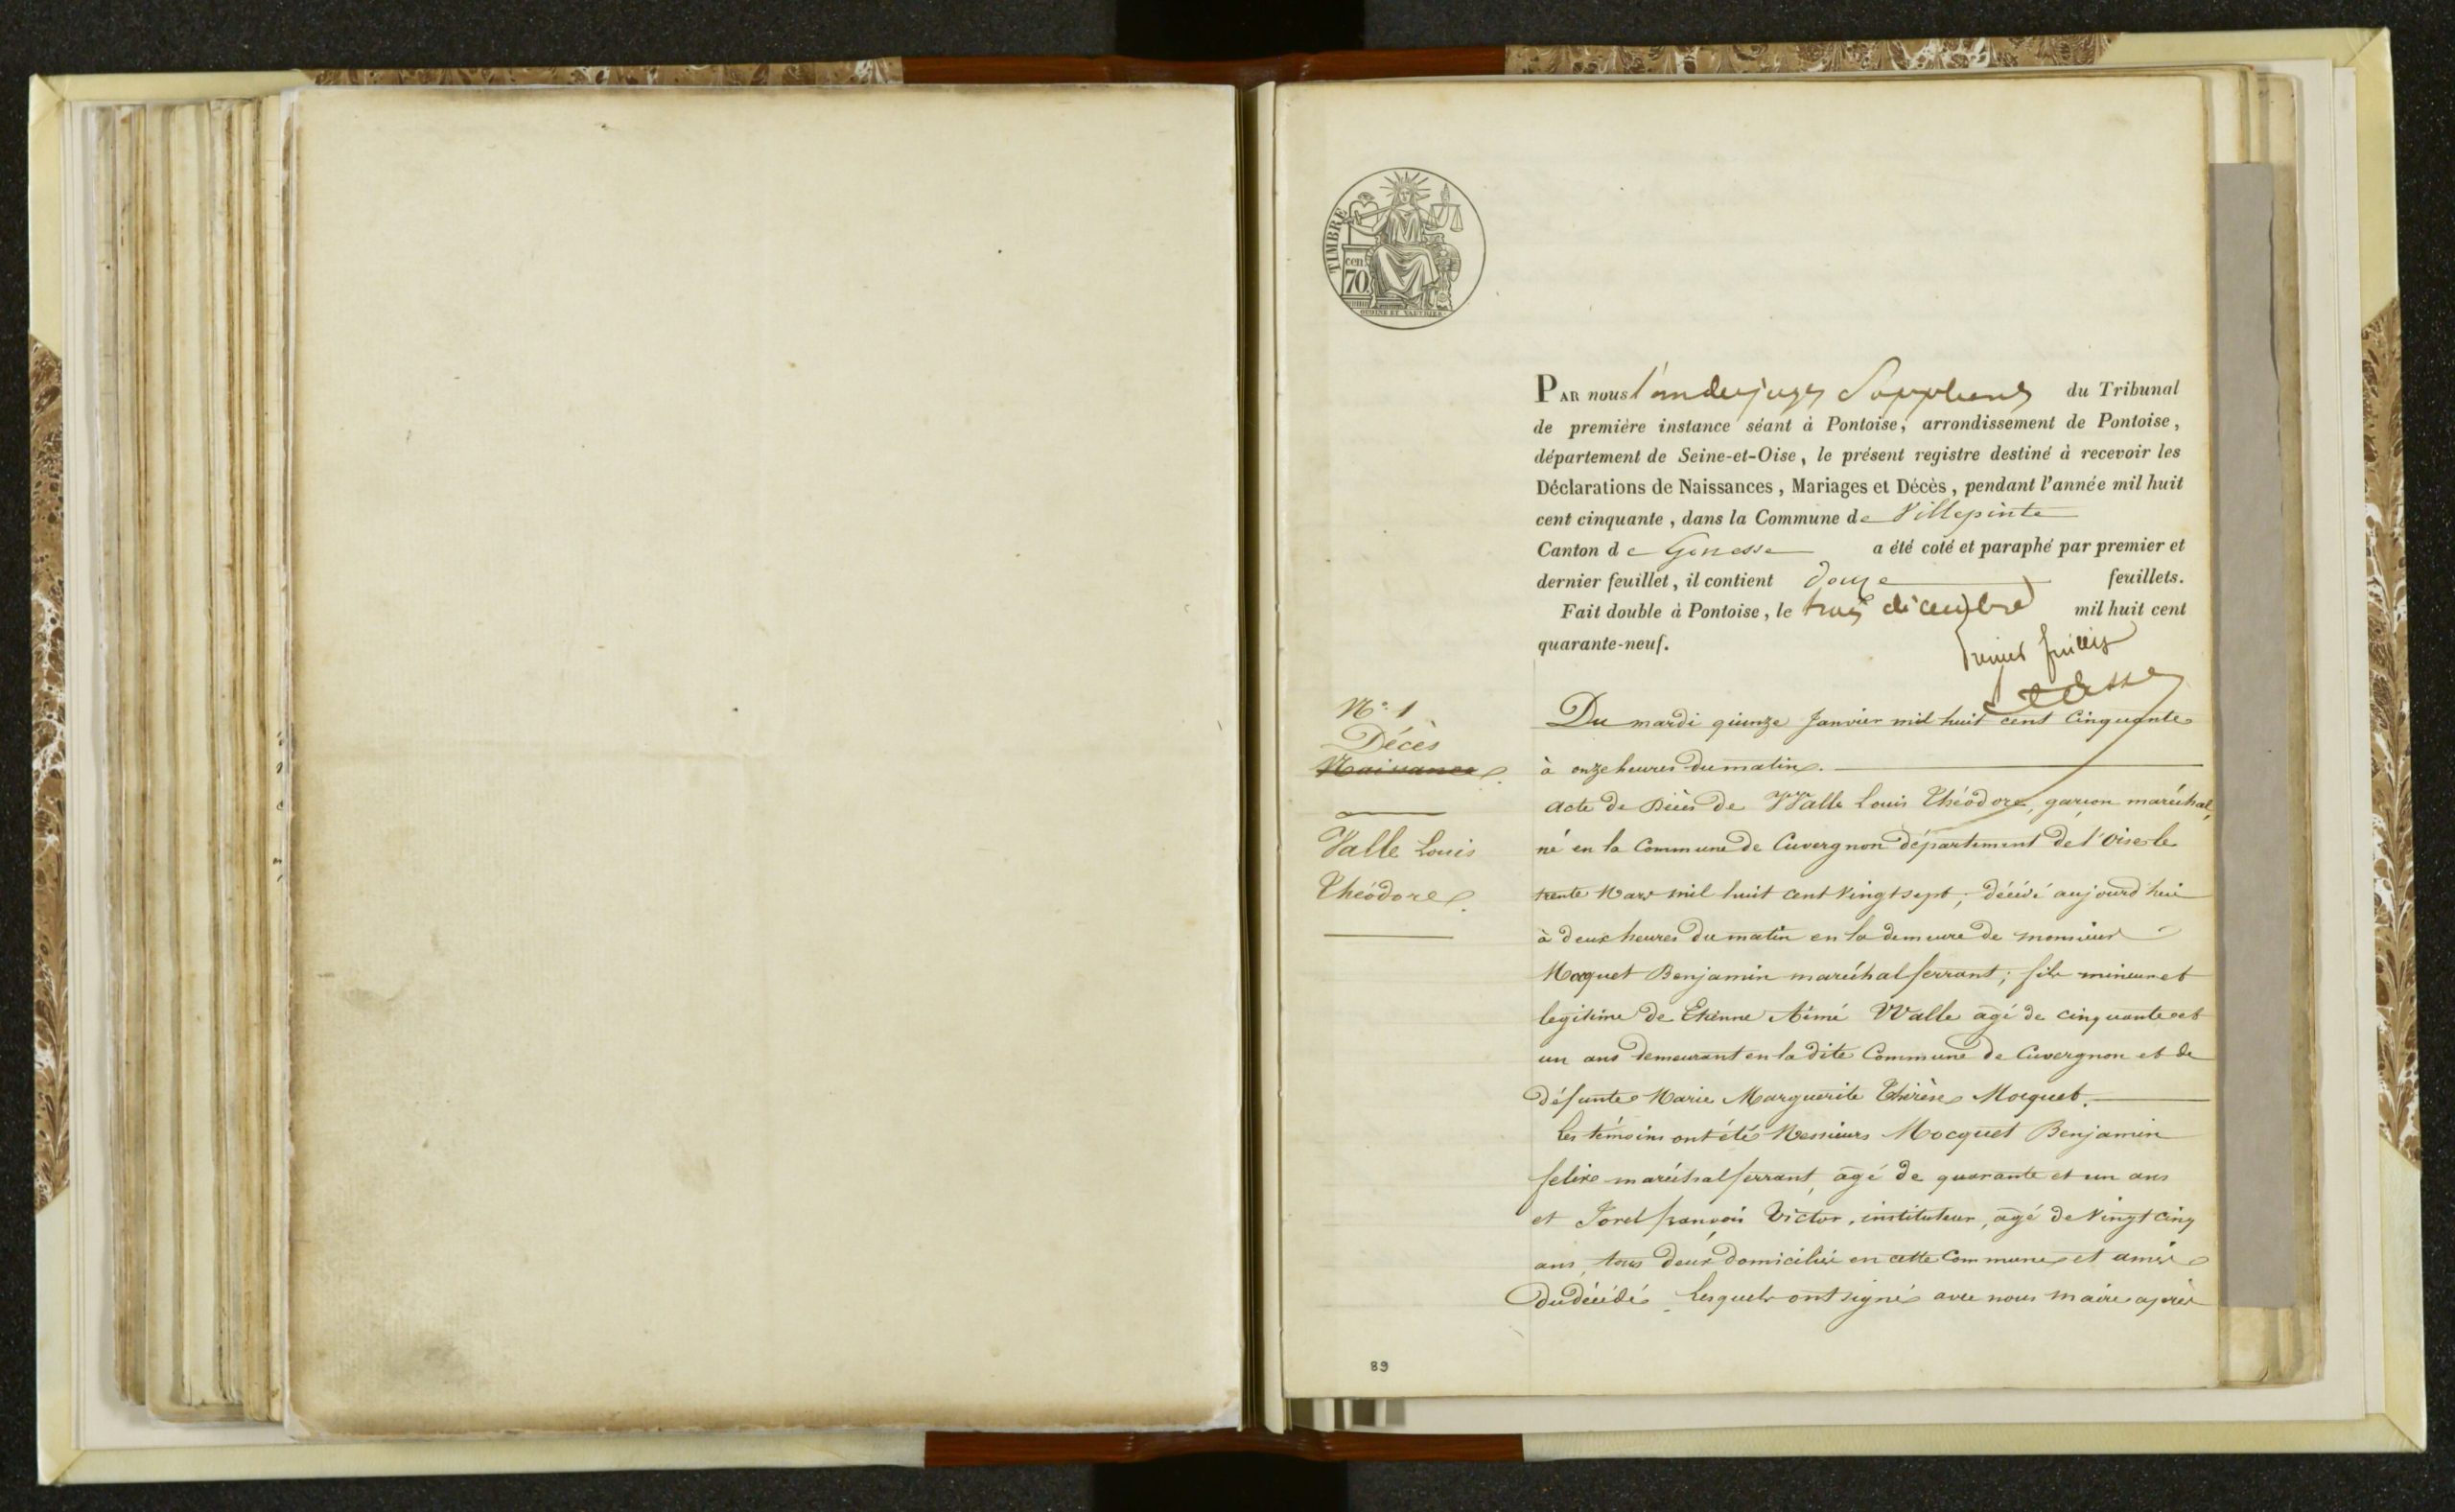 TIMBRE
cen.
70.
Par nous l'un des juges Suppleants du Tribunal
de première instance séant à Pontoise, arrondissement de Pontoise,
département de Seine-et-Oise, le présent registre destiné à recevoir les
Déclarations de Naissances, Mariages et Décès, pendant l'année mil huit
cent cinquante, dans la Commune de Villepinte
Canton de Gonesse a été coté et paraphé par premier et
dernier feuillet, il contient douze feuillets.
Fait double à Pontoise, le trois décembre mil huit cent
quarante-neuf.
N° 1
Décès
Naissance
Valle Louis
Théodore.
Du mardi quinze Janvier mil huit cent Cinquante
à onze heures du matin.
acte de Décès de Walle Louis Théodore, garçon maréchal,
né en la Commune de Cuvergnon département de l'Oise le
trente Mars mil huit cent Vingt sept; décédé aujourd'hui
à deux heures du matin en la demeure de monsieur
Mocquet Benjamin maréchal ferrant; fils mineur et
legitime de Etienne Aimé Walle agé de cinquante et
un ans demeurant en la dite Commune de Cuvergnon et de
défunte Marie Marguerite Thérèse Mocquet.
les témoins ont été Messieurs Mocquet Benjamin
felix maréchal ferrant, agé de quarante et un ans
et Jorel françois Victor, instituteur, agé de Vingt cinq
ans, tous deux domiciliés en cette Commune et amis
du décédé. Lesquels ont signé avec nous maire après
89